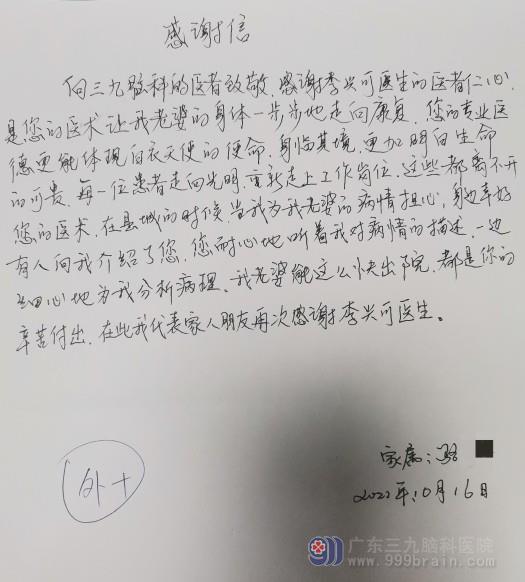 感谢信
向三九脑科的医者致敬，感谢李兴可医生的医者仁心.
是您的医术让我老婆的身体一步步地走向康复，您的专业医
德更能体现白衣天使的使命，身临其境，更加明白生命
的可贵，每一位患者走向光明，重新走上工作岗位，这些都离不开
您的医术，在县城的时候，当我为我老婆的病情担心，身边幸好
有人向我介绍了您，您耐心地听着我对病情的描述，一边
细心地为我分析病理、我老婆能这么快出院，都是你的
辛苦付出，在此我代表家人朋友再次感谢李兴可医生。
家属：
2022年10月16日
外十
广东三九脑科医院
www.999brain.com